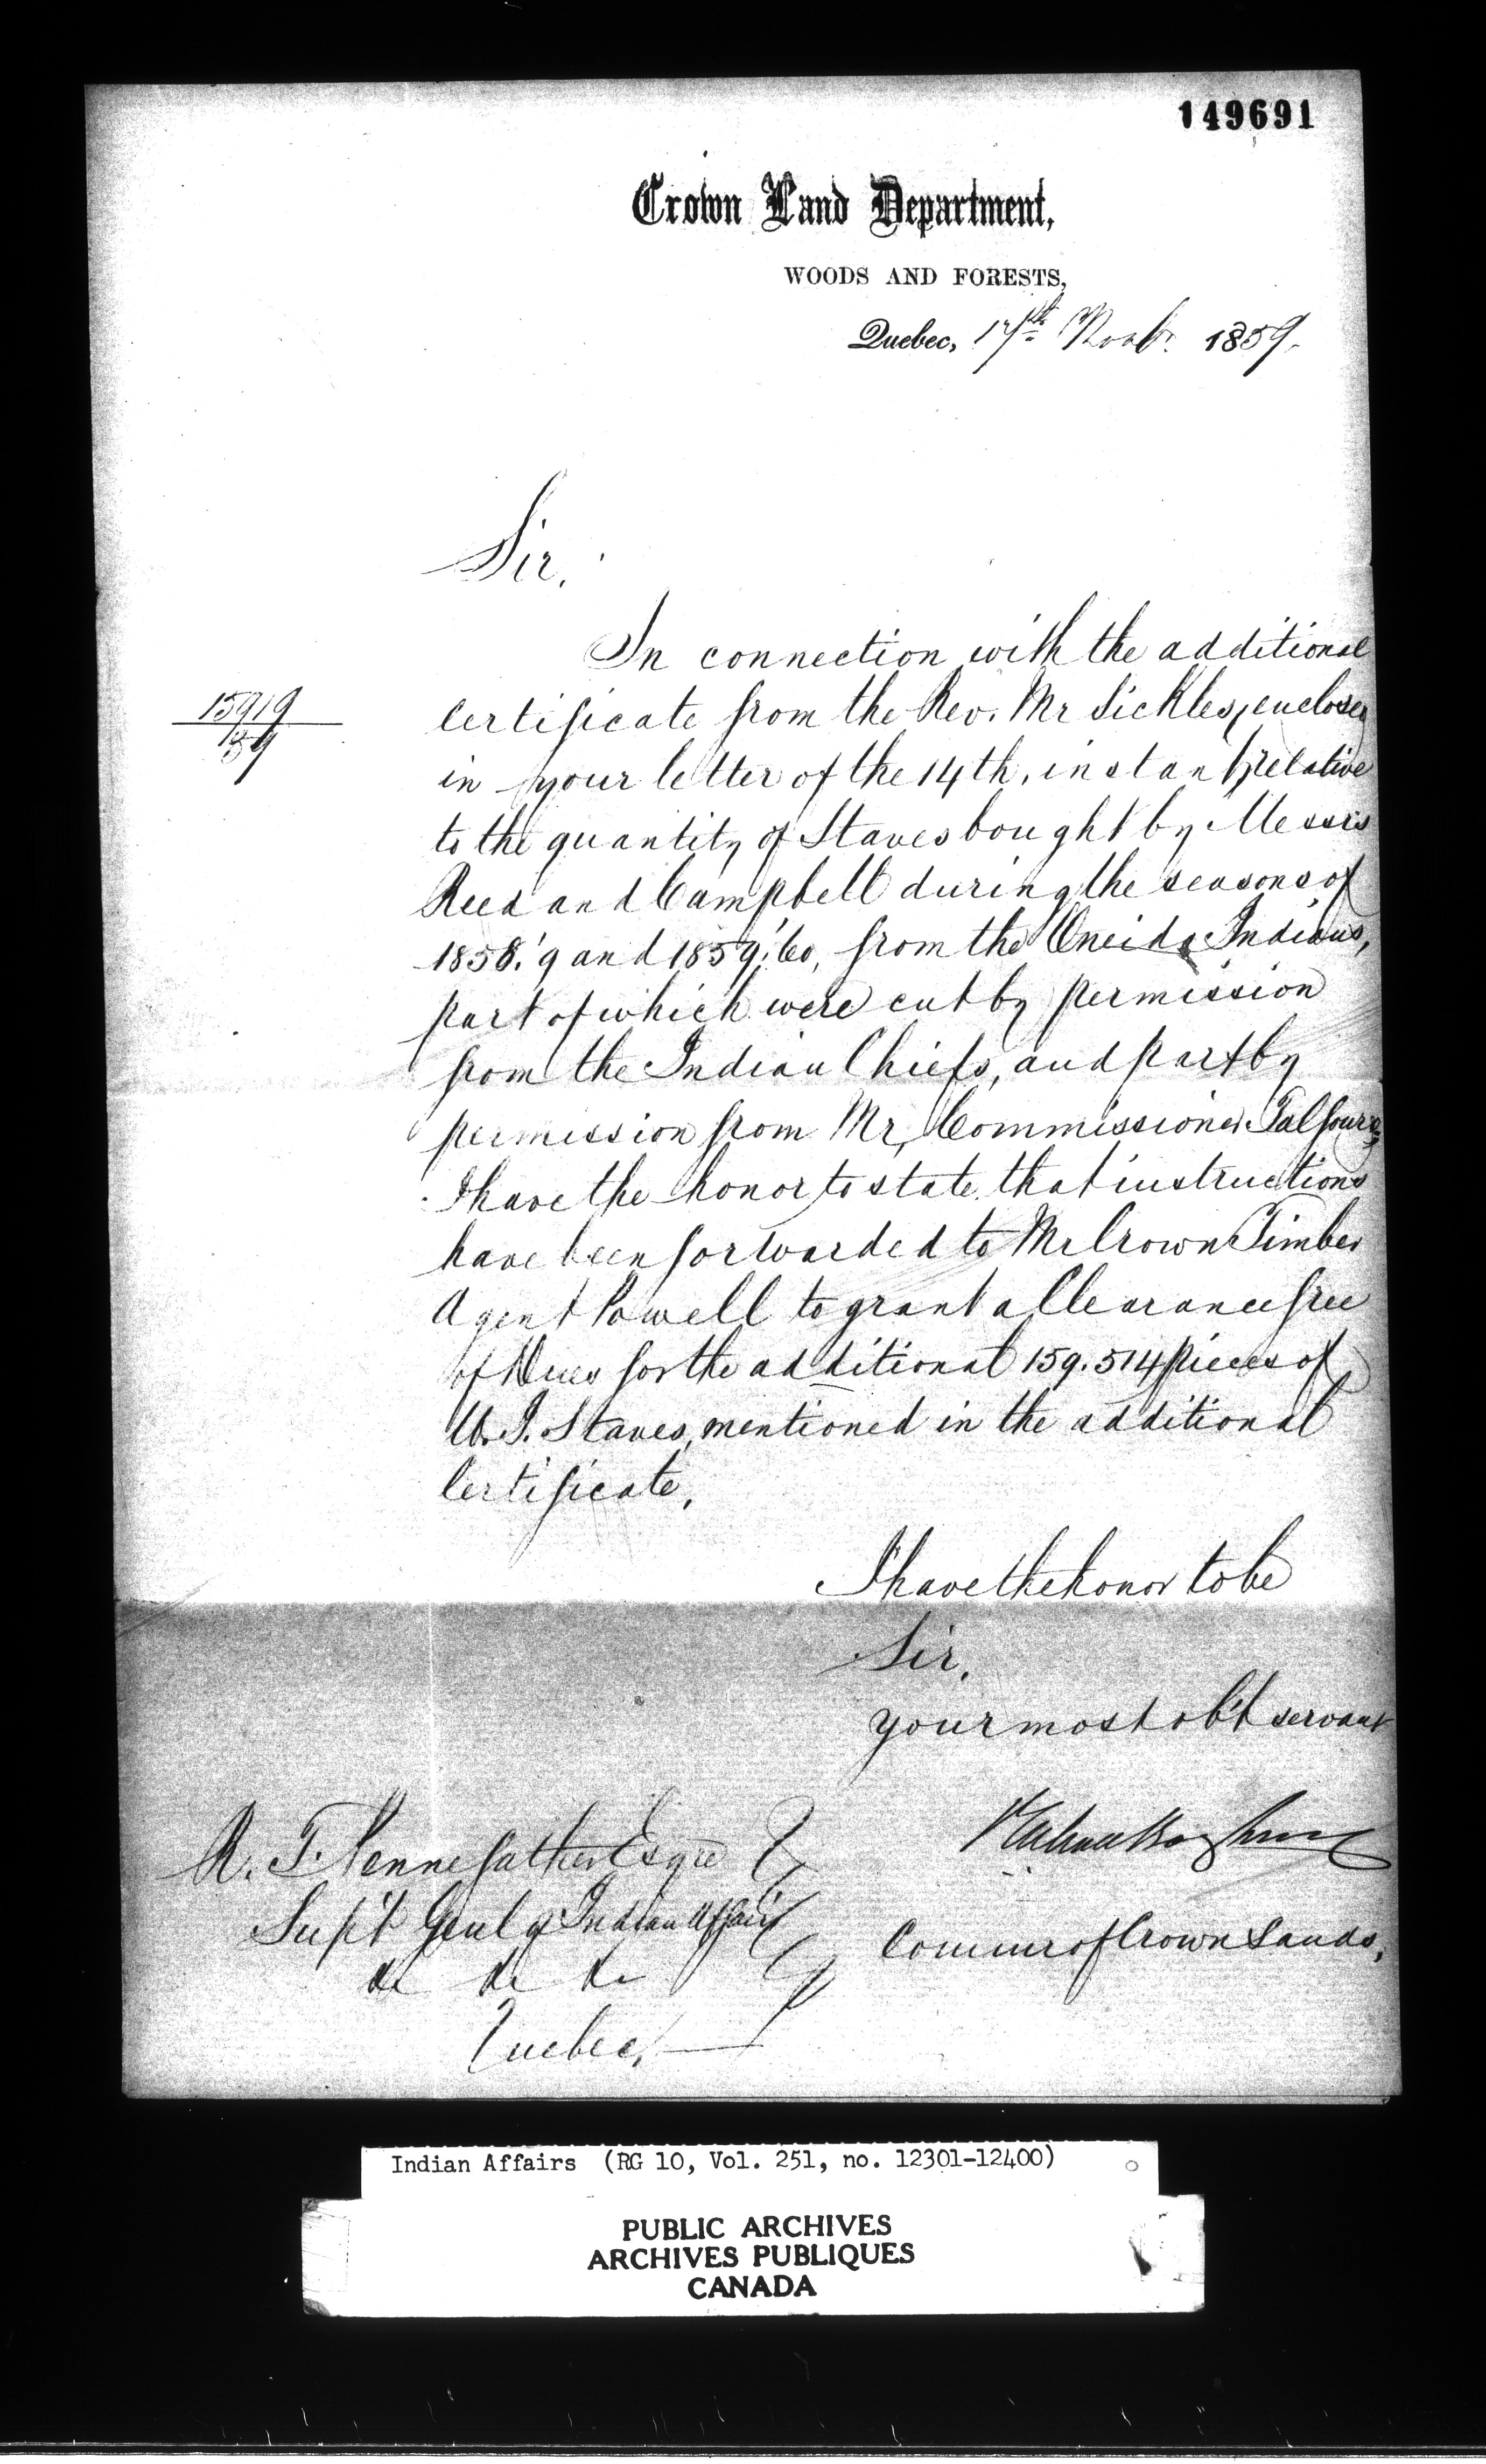 149691
Crown Land Department,
WOODS AND FORESTS,
Quebec, 17th Novbr. 1859.
Sir,
In connection with the additional
15919
/59
Certificate from the Rev. Mr Sickles, enclosed
in your letter of the 14th, instant, relative
to the quantity of Staves bought by Messrs
Reed and Campbell during the seasons of
1858.'9 and 1859.'60, from the Oneida Indians,
part of which were cut by permission
from the Indian Chiefs, and part by
permission from Mr, Commissioner Talfourd,
I have the honor to state that instructions
have been forwarded to Mr Crown Timber
Agent Powell to grant a Clearance free
of Dues for the additional 159.514 pieces of
W.I. Staves, mentioned in the additional
Certificate.
I have the honor to be
Sir,
your most ob't servant
R. T. Pennefather Esqre
Supt Genl of Indian Affairs
&c &c &c
Commr of Crown Lands,
Quebec.
Indian Affairs (RG 10, Vol. 251, no. 12301-12400)
PUBLIC ARCHIVES
ARCHIVES PUBLIQUES
CANADA